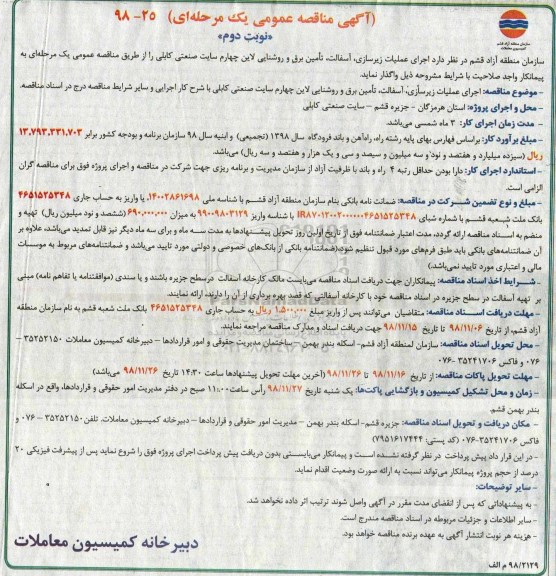 سازمان منطقه آزاد قشم
(آگهی مناقصه عمومی یک مرحله‌ای) ۲۵-۹۸
«نوبت دوم»
سازمان منطقه آزاد قشم در نظر دارد اجرای عملیات زیرسازی، آسفالت، تأمین برق و روشنایی لاین چهارم سایت صنعتی کابلی را از طریق مناقصه عمومی یک مرحله‌ای به
پیمانکار واجد صلاحیت با شرایط مشروحه ذیل واگذار نماید.
- موضوع مناقصه: اجرای عملیات زیرسازی، آسفالت، تأمین برق و روشنایی لاین چهارم سایت صنعتی کابلی با شرح کار اجرایی و سایر شرایط مناقصه درج در اسناد مناقصه.
- محل و اجرای پروژه: استان هرمزگان - جزیره قشم - سایت صنعتی کابلی
- مدت زمان اجرای کار: ۳ ماه شمسی می‌باشد.
- مبلغ برآورد کار: براساس فهارس بهای پایه رشته راه، راه‌آهن و باند فرودگاه سال ۱۳۹۸ (تجمیعی) و ابنیه سال ۹۸ سازمان برنامه و بودجه کشور برابر ۱۳,۷۹۳,۳۳۱,۷۰۳
ریال (سیزده میلیارد و هفتصد و نود و سه میلیون و سیصد و سی و یک هزار و هفتصد و سه ریال) می‌باشد.
- استاندارد اجرای کار: دارا بودن حداقل رتبه ۴ راه و باند با ظرفیت آزاد از سازمان مدیریت و برنامه ریزی جهت شرکت در مناقصه و اجرای پروژه فوق برای مناقصه گران
الزامی است.
- مبلغ و نوع تضمین شرکت در مناقصه: ضمانت نامه بانکی بنام سازمان منطقه آزاد قشم با شناسه ملی ۱۴۰۰۲۸۶۱۶۹۸ یا واریز به حساب جاری ۴۶۵۱۵۲۵۳۴۸
بانک ملت شعبه قشم با شماره شبای IR۸۷۰۱۲۰۰۲۰۰۰۰۰۴۶۵۱۵۲۵۳۴۸ با شناسه واریز ۹۹۰۰۹۸۰۳۱۲۹ به میزان ۶۹۰,۰۰۰,۰۰۰ (ششصد و نود میلیون ریال) تهیه و
منضم به اسناد مناقصه ارائه گردد، مدت اعتبار ضمانتنامه فوق از تاریخ اولین روز تحویل پیشنهادها به مدت سه ماه و برای سه ماه دیگر نیز قابل تمدید می‌باشد، علاوه بر
آن ضمانتنامه‌های بانکی باید طبق فرم‌های مورد قبول تنظیم شود (ضمانتنامه بانکی از بانک‌های خصوصی و دولتی مورد تایید می‌باشد و ضمانتنامه‌های مربوط به موسسات
مالی و اعتباری مورد تایید نمی‌باشد)
- شرایط اخذ اسناد مناقصه: پیمانکاران جهت دریافت اسناد مناقصه می‌بایست مالک کارخانه آسفالت درسطح جزیره باشند و یا سندی (موافقتنامه یا تفاهم نامه) مبنی
بر تهیه آسفالت در سطح جزیره در اسناد مناقصه خود با کارخانه آسفالتی که قصد بهره برداری از آن را دارند، ارائه نمایند.
- مهلت دریافت اسناد مناقصه: متقاضیان می‌توانند پس از واریز مبلغ ۱,۵۰۰,۰۰۰ ریال به حساب جاری ۴۶۵۱۵۲۵۳۴۸ بانک ملت شعبه قشم به نام سازمان منطقه
آزاد قشم، از تاریخ ۹۸/۱۱/۰۶ تا تاریخ ۹۸/۱۱/۱۵ جهت دریافت اسناد و مدارک مناقصه مراجعه نمایند.
- محل تحویل اسناد مناقصه: سازمان منطقه آزاد قشم- اسکله بندر بهمن - ساختمان مدیریت حقوقی و امور قراردادها - دبیرخانه کمیسیون معاملات ۳۵۲۵۲۱۵۰-
۰۷۶ و فاکس ۳۵۲۴۱۷۰۶-۰۷۶
- مهلت تحویل پاکات مناقصه: از تاریخ ۹۸/۱۱/۱۶ تا ۹۸/۱۱/۲۶ (آخرین مهلت تحویل پیشنهادها ساعت ۱۴:۳۰ تاریخ ۹۸/۱۱/۲۶ می‌باشد)
- زمان و محل تشکیل کمیسیون و بازگشایی پاکت‌ها: یک شنبه تاریخ ۹۸/۱۱/۲۷ رأس ساعت ۱۱:۰۰ صبح در دفتر مدیریت امور حقوقی و قراردادها، واقع در اسکله
بندر بهمن قشم.
- مکان دریافت و تحویل اسناد مناقصه: جزیره قشم- اسکله بندر بهمن - مدیریت امور حقوقی و قراردادها - دبیرخانه کمیسیون معاملات. تلفن ۳۵۲۵۲۱۵۰ - ۰۷۶ و
فاکس ۳۵۲۴۱۷۰۶-۰۷۶ (کد پستی: ۷۹۵۱۶۱۷۴۴۴)
- در این قرار داد پیش پرداخت در نظر گرفته نشده است و پیمانکار می‌بایستی بدون دریافت پیش پرداخت اجرای پروژه فوق را شروع نماید پس از پیشرفت فیزیکی ۲۰
درصد از حجم پروژه پیمانکار می‌تواند نسبت به ارائه صورت وضعیت اقدام نماید.
- سایر توضیحات:
- به پیشنهاداتی که پس از انقضای مدت مقرر در آگهی واصل شوند ترتیب اثر داده نخواهد شد.
- سایر اطلاعات و جزئیات مربوطه در اسناد مناقصه مندرج است.
- هزینه هر نوبت انتشار آگهی به عهده برنده مناقصه خواهد بود.
دبیرخانه کمیسیون معاملات
۹۸/۲۱۲۹ م الف